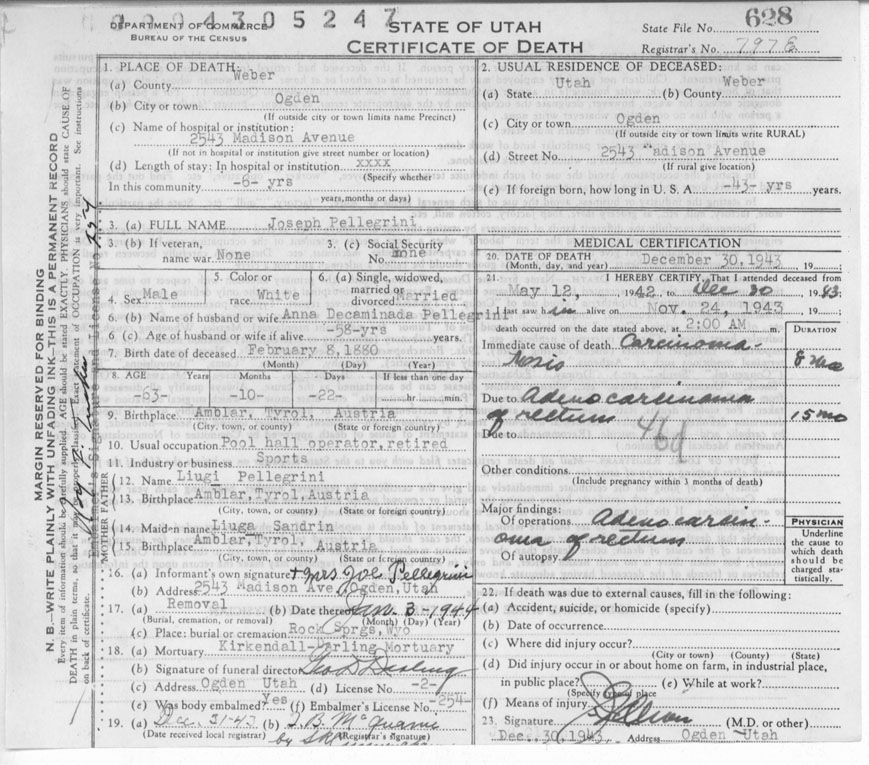 0 0 0 4 3 0 5 2 4 7
DEPARTMENT OF COMMERCE
BUREAU OF THE CENSUS
STATE OF UTAH
CERTIFICATE OF DEATH
State File No. 628
Registrar's No. 7976
MARGIN RESERVED FOR BINDING
N. B.—WRITE PLAINLY WITH UNFADING INK—THIS IS A PERMANENT RECORD
Every item of information should be carefully supplied. AGE should be stated EXACTLY. PHYSICIANS should state CAUSE OF
DEATH in plain terms, so that it may be properly classified. Exact statement of OCCUPATION is very important. See instructions
on back of certificate.
Embalmer's Signature and License No. 254
1. PLACE OF DEATH:
(a) County Weber
(b) City or town Ogden
(If outside city or town limits name Precinct)
(c) Name of hospital or institution:
2543 Madison Avenue
(If not in hospital or institution give street number or location)
(d) Length of stay: In hospital or institution xxxx
(Specify whether
In this community -6- yrs
years, months or days)
2. USUAL RESIDENCE OF DECEASED:
(a) State Utah (b) County Weber
(c) City or town Ogden
(If outside city or town limits write RURAL)
(d) Street No. 2543 adison Avenue
(If rural give location)
(e) If foreign born, how long in U. S. A. -43- yrs years.
3. (a) FULL NAME Joseph Pellegrini
3. (b) If veteran, name war None
3. (c) Social Security No. none
4. Sex Male
5. Color or race White
6. (a) Single, widowed, married or divorced Married
6. (b) Name of husband or wife Anna Decaminada Pellegrini
6 (c) Age of husband or wife if alive -58-yrs years.
7. Birth date of deceased February 8, 1880
(Month) (Day) (Year)
8. AGE Years Months Days If less than one day
-63- -10- -22- hr. min.
9. Birthplace Amblar, Tyrol, Austria
(City, town, or county) (State or foreign country)
10. Usual occupation Pool hall operator, retired
11. Industry or business Sports
FATHER
12. Name Liugi Pellegrini
13. Birthplace Amblar, Tyrol, Austria
(City, town, or county) (State or foreign country)
MOTHER
14. Maiden name Liuga Sandrin
15. Birthplace Amblar, Tyrol, Austria
(City, town, or county) (State or foreign country)
16. (a) Informant's own signature + Mrs Joe Pellegrini
(b) Address 2543 Madison Ave, Ogden, Utah
17. (a) Removal (b) Date thereof Jan. 3-1944
(Burial, cremation, or removal) (Month) (Day) (Year)
(c) Place: burial or cremation Rock Sprgs, Wyo
18. (a) Mortuary Kirkendall-Darling Mortuary
(b) Signature of funeral director Geo D Darling
(c) Address Ogden Utah (d) License No. -2-
(e) Was body embalmed? Yes (f) Embalmer's License No. -254-
19. (a) Dec. 31-43 (b)
(Date received local registrar) (Registrar's signature)
MEDICAL CERTIFICATION
20. DATE OF DEATH December 30, 1943, 19
(Month, day, and year)
21. I HEREBY CERTIFY, That I attended deceased from
May 12, 1942 to Dec 30, 1943;
I last saw him alive on Nov. 24, 1943
death occurred on the date stated above, at 2:00 AM m.
DURATION
Immediate cause of death Carcinoma-
tosis 8 mo
Due to Adenocarcinoma
of rectum 15 mo
Due to 46d
Other conditions
(Include pregnancy within 3 months of death)
Major findings:
Of operations Adenocarcin-
oma of rectum
Of autopsy
PHYSICIAN
Underline
the cause to
which death
should be
charged sta-
tistically.
22. If death was due to external causes, fill in the following:
(a) Accident, suicide, or homicide (specify)
(b) Date of occurrence
(c) Where did injury occur?
(City or town) (County) (State)
(d) Did injury occur in or about home on farm, in industrial place,
in public place? (e) While at work?
(Specify type of place
(f) Means of injury
23. Signature (M.D. or other)
Dec. 30, 1943. Address Ogden Utah